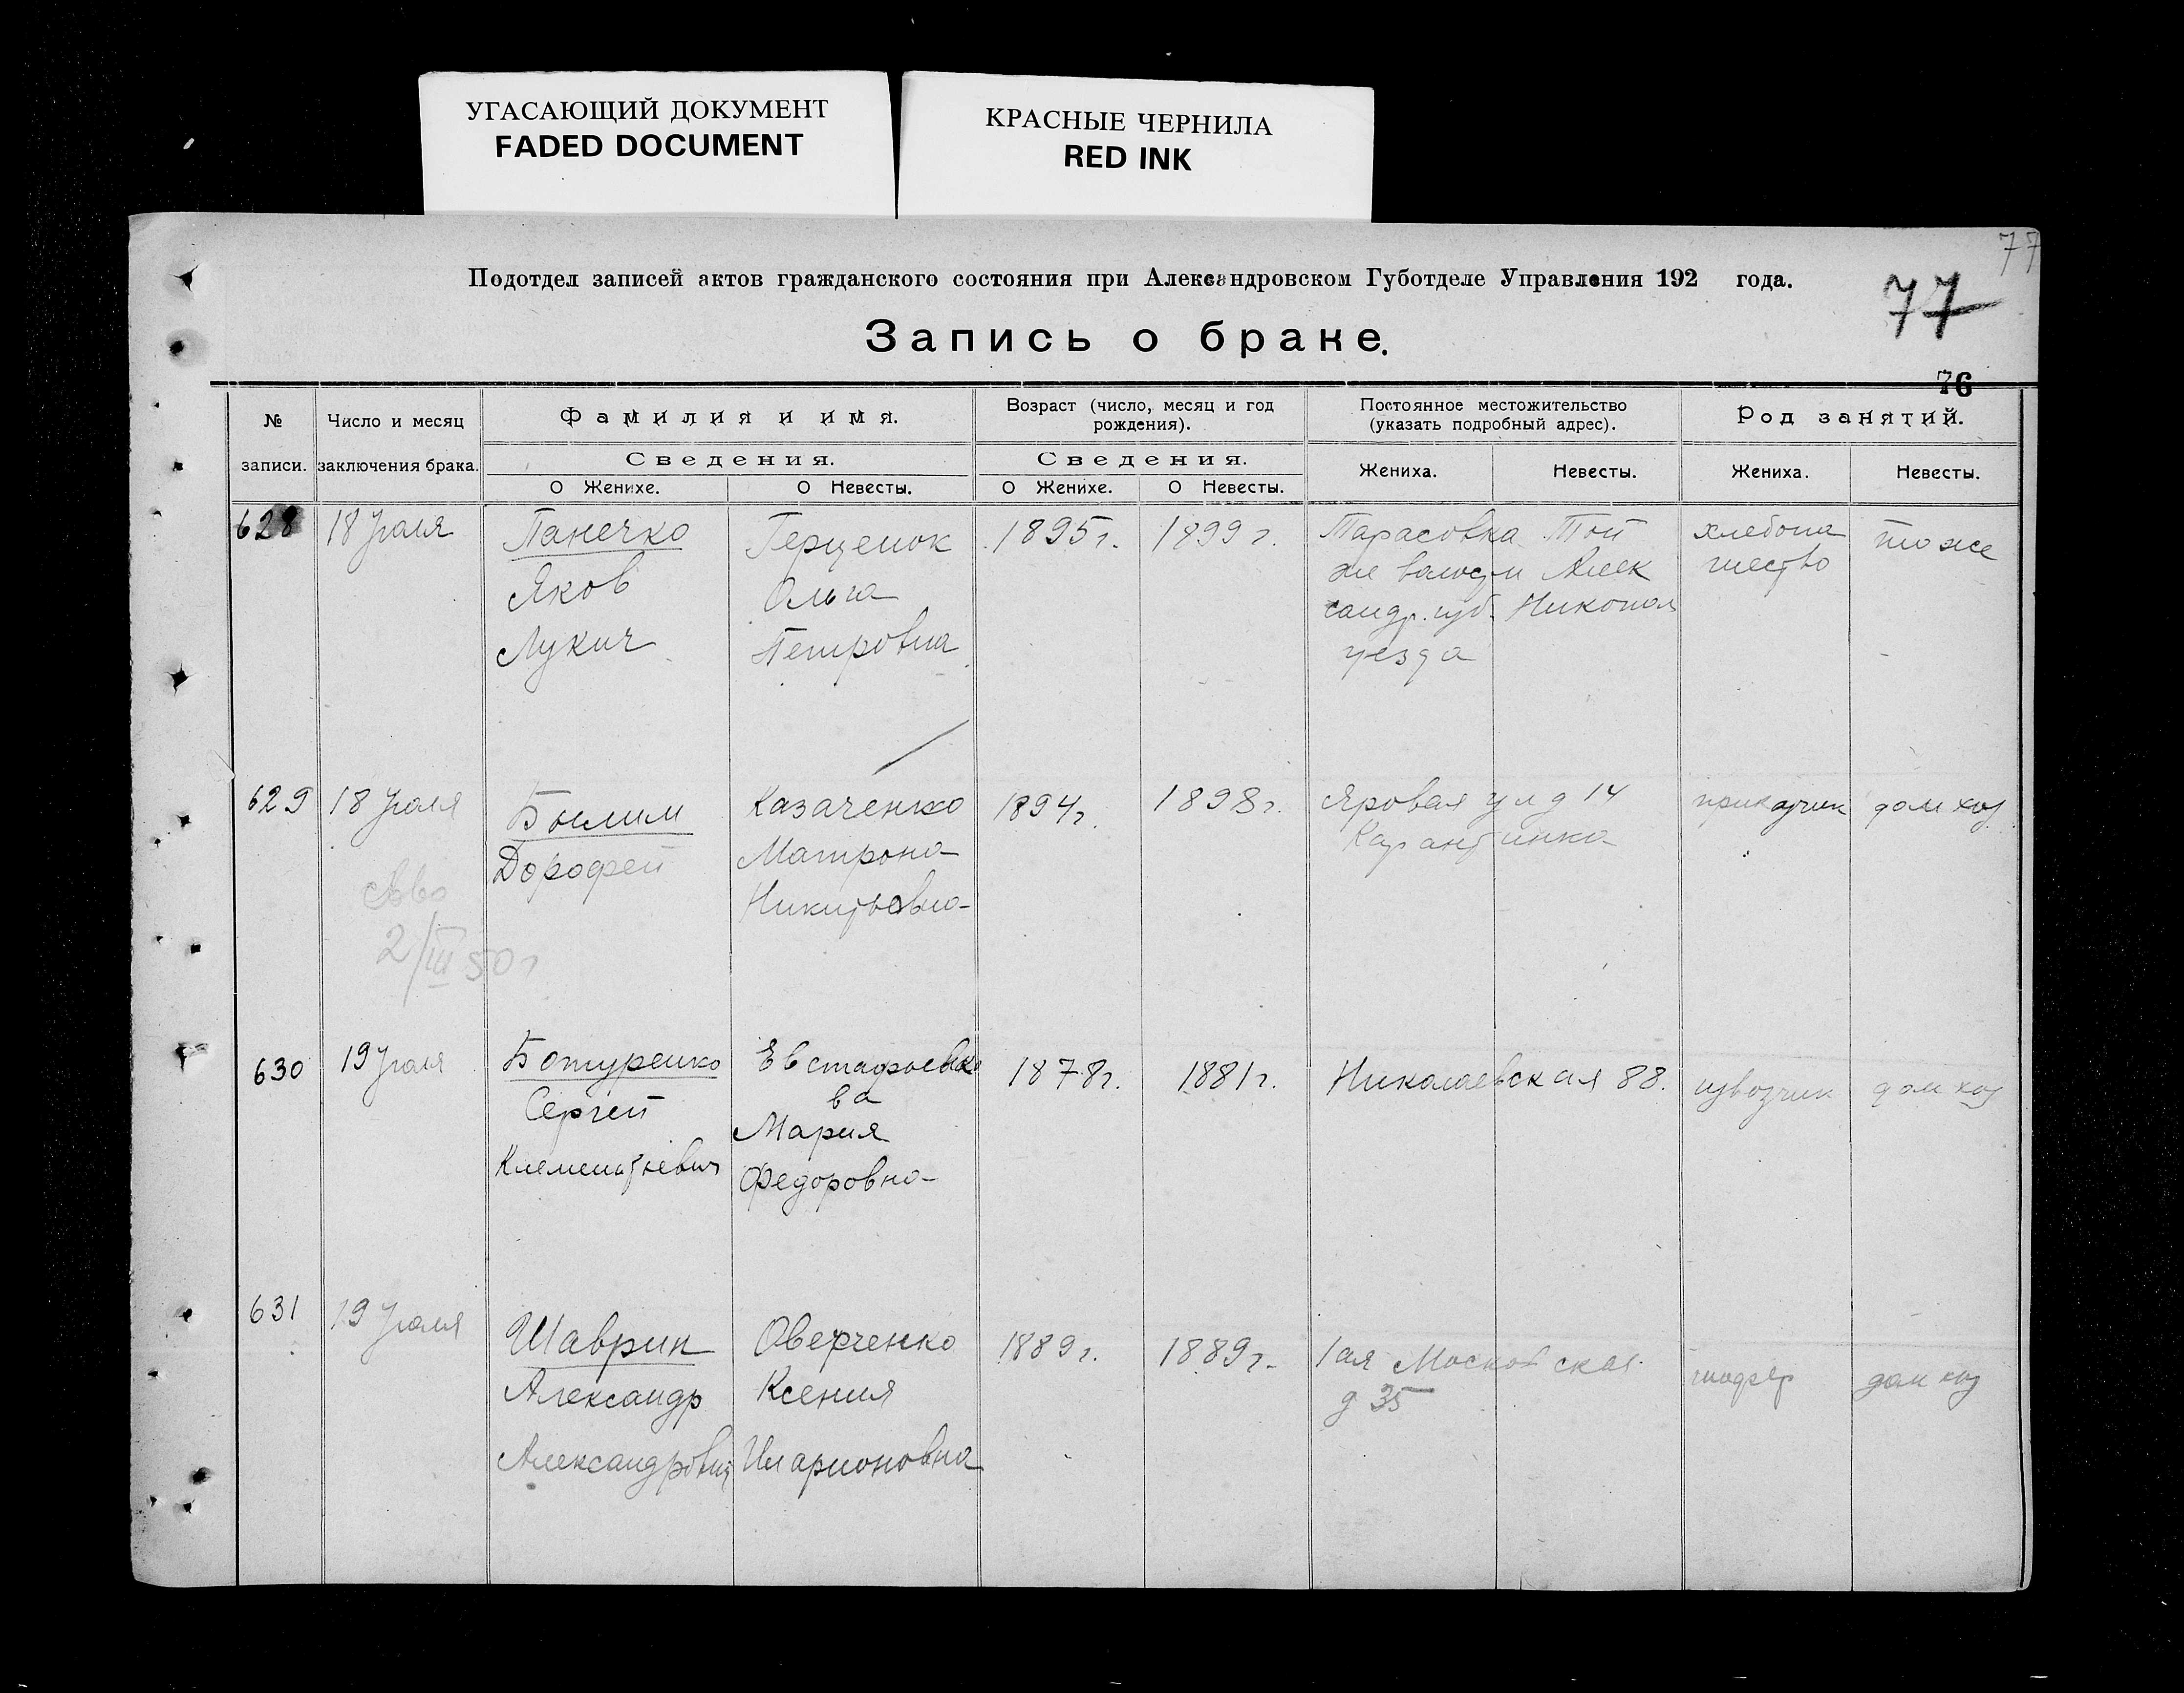 УГАСАЮЩИЙ ДОКУМЕНТ
FADED DOCUMENT
КРАСНЫЕ ЧЕРНИЛА
RED INK
77
Подотдел записей актов гражданского состояния при Александровском Губотделе Управления 192 года.
77
Запись о браке.
76
№ записи.
Число и месяц заключения брака.
Фамилия и имя.
Сведения.
О Женихе.
О Невесты.
Возраст (число, месяц и год
рождения).
Сведения.
О Женихе.
О Невесты.
Постоянное местожительство
(указать подробный адрес).
Жениха.
Невесты.
Род занятий.
Жениха.
Невесты.
628
18 Июля
Панечко
Яков
Лукич
Герценок
Ольга
Петровна
1895 г.
1899 г.
Тарасовка Той
же волости Алек
сандр. губ. Никопол
уезда
хлебопа
шество
тоже
629
18 Июля
2/III 50 г
Былим
Дорофей
Казаченко
Матрона
Никитьовна
1894 г.
1898 г.
Яровая ул д 14
Карантинка
приказчик
дом хоз
630
19 Июля
Ботуренко
Сергей
Клементьевич
Евстафьевко
ва
Мария
Федоровна
1878 г.
1881 г.
Николаевская 88.
извозчик
дом хоз
631
19 Июля
Шаврин
Александр
Александрович
Оверченко
Ксения
Иларионовна
1889 г.
1889 г.
1ая Московская
д 35
дом хоз